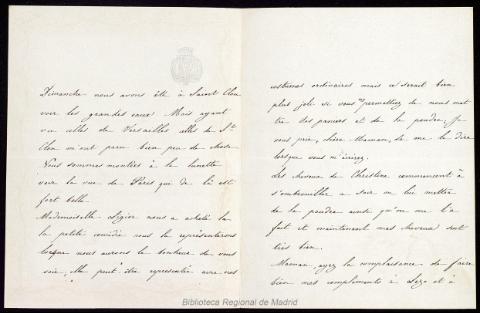 Dimanche nous avons été à Saint Clou
voir les grandes eaux. Mais ayant
vu celles de Versailles celles de St
Clou m'ont paru bien peu de chose.
Nous sommes montées à la lanette
voir la vue de Paris que de là est
fort belle.
Mademoiselle nous a acheté la
la petite comédie nous la représenterons
lorsque nous aurons le bonheur de vous
voir, elle peut être représentée avec nos
costumes ordinaires mais ce serait bien
plus joli si vous permettiez de nous met
tre des paniers et de la poudre. Je
vous prie, chère Maman, de me le dire
lorsque vous m'écrirez.
Les cheveux de Christine commencent à
s'embrouiller a soir on lui mettra
de la poudre ainsi qu'on me l'a
fait et maintenant mes cheveux sont
très bien.
Maman, ayez la complaisance de faire
bien mes compliments à et à
Biblioteca Regional de Madrid